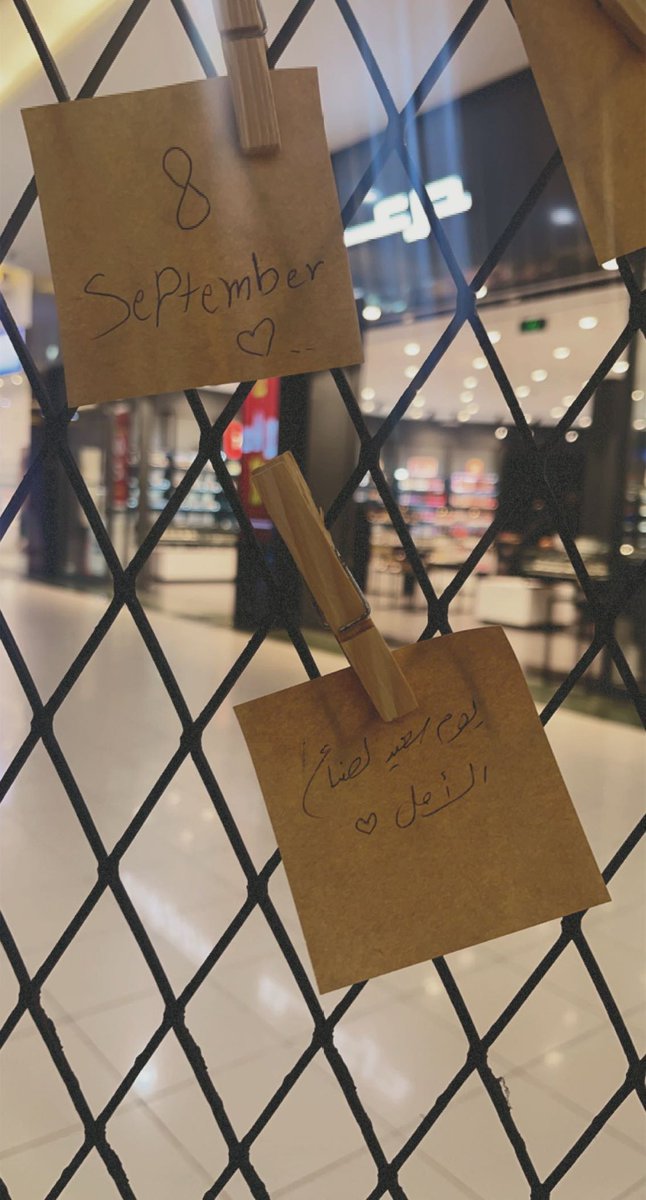 8
September
يوم سعيد لصناع
الأمل